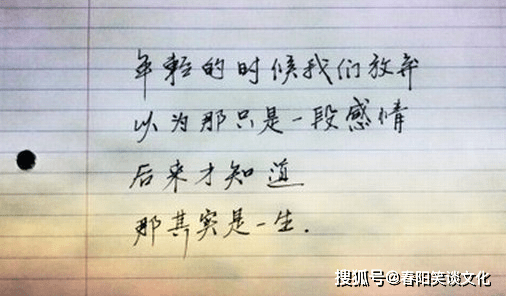 年轻的时候我们放弃
以为那只是一段感情
后来才知道
那其实是一生.
搜狐号@春阳笑谈文化